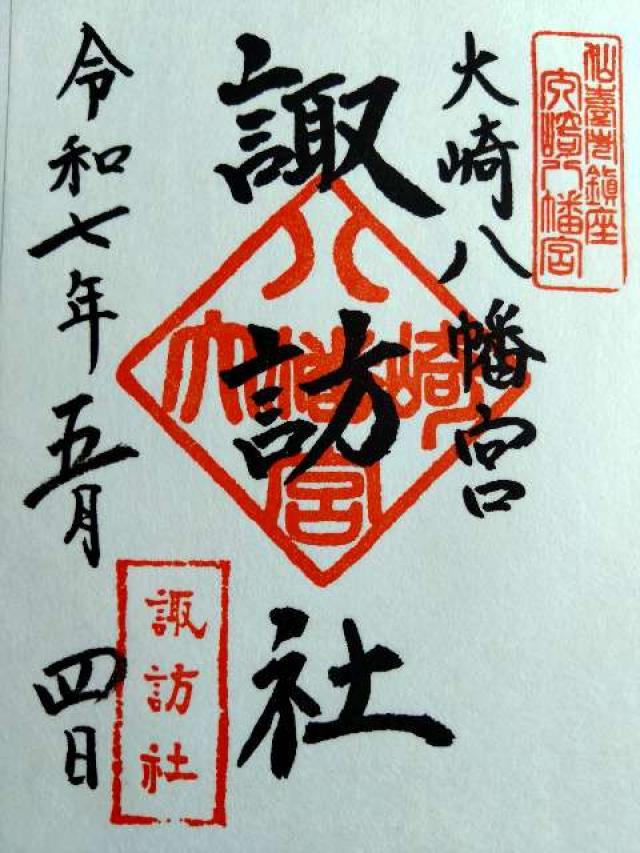 仙臺市鎮座
大崎八幡宮
大崎八幡宮
諏訪社
八
大幡崎
宮
諏訪社
令和七年五月四日